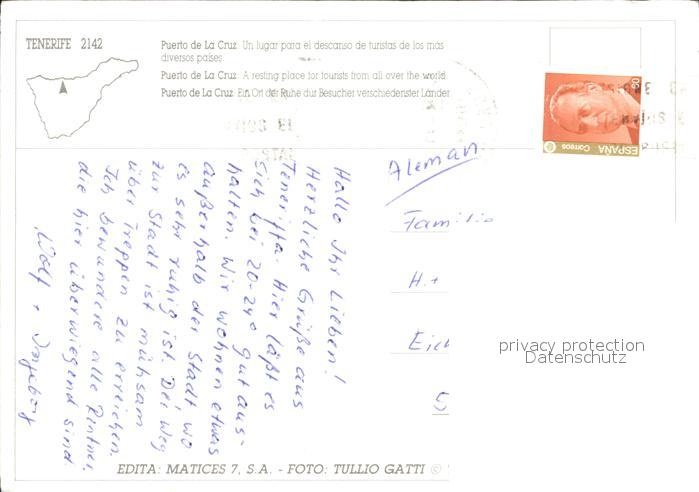 TENERIFE 2142
Puerto de La Cruz. Un lugar para el descanso de turistas de los más
diversos países.
Puerto de La Cruz. A resting place for tourists from all over the world.
Puerto de La Cruz. Ein Ort der Ruhe dur Besucher verschiedenster Länder
50
ESPAÑA
Correos
Aleman
Familie
H. +
Eich
privacy protection
Datenschutz
Hallo Ihr Lieben!
Herzliche Grüße aus
Teneriffa. Hier läßt es
sich bei 20-24° gut aus-
halten. Wir wohnen etwas
außerhalb der Stadt wo
es sehr ruhig ist. Der Weg
zur Stadt ist mühsam
über Treppen zu erreichen.
Ich bewundere alle Rentner,
die hier überwiegend sind.
Wolf + Ingeborg
EDITA: MATICES 7, S.A. - FOTO: TULLIO GATTI ©